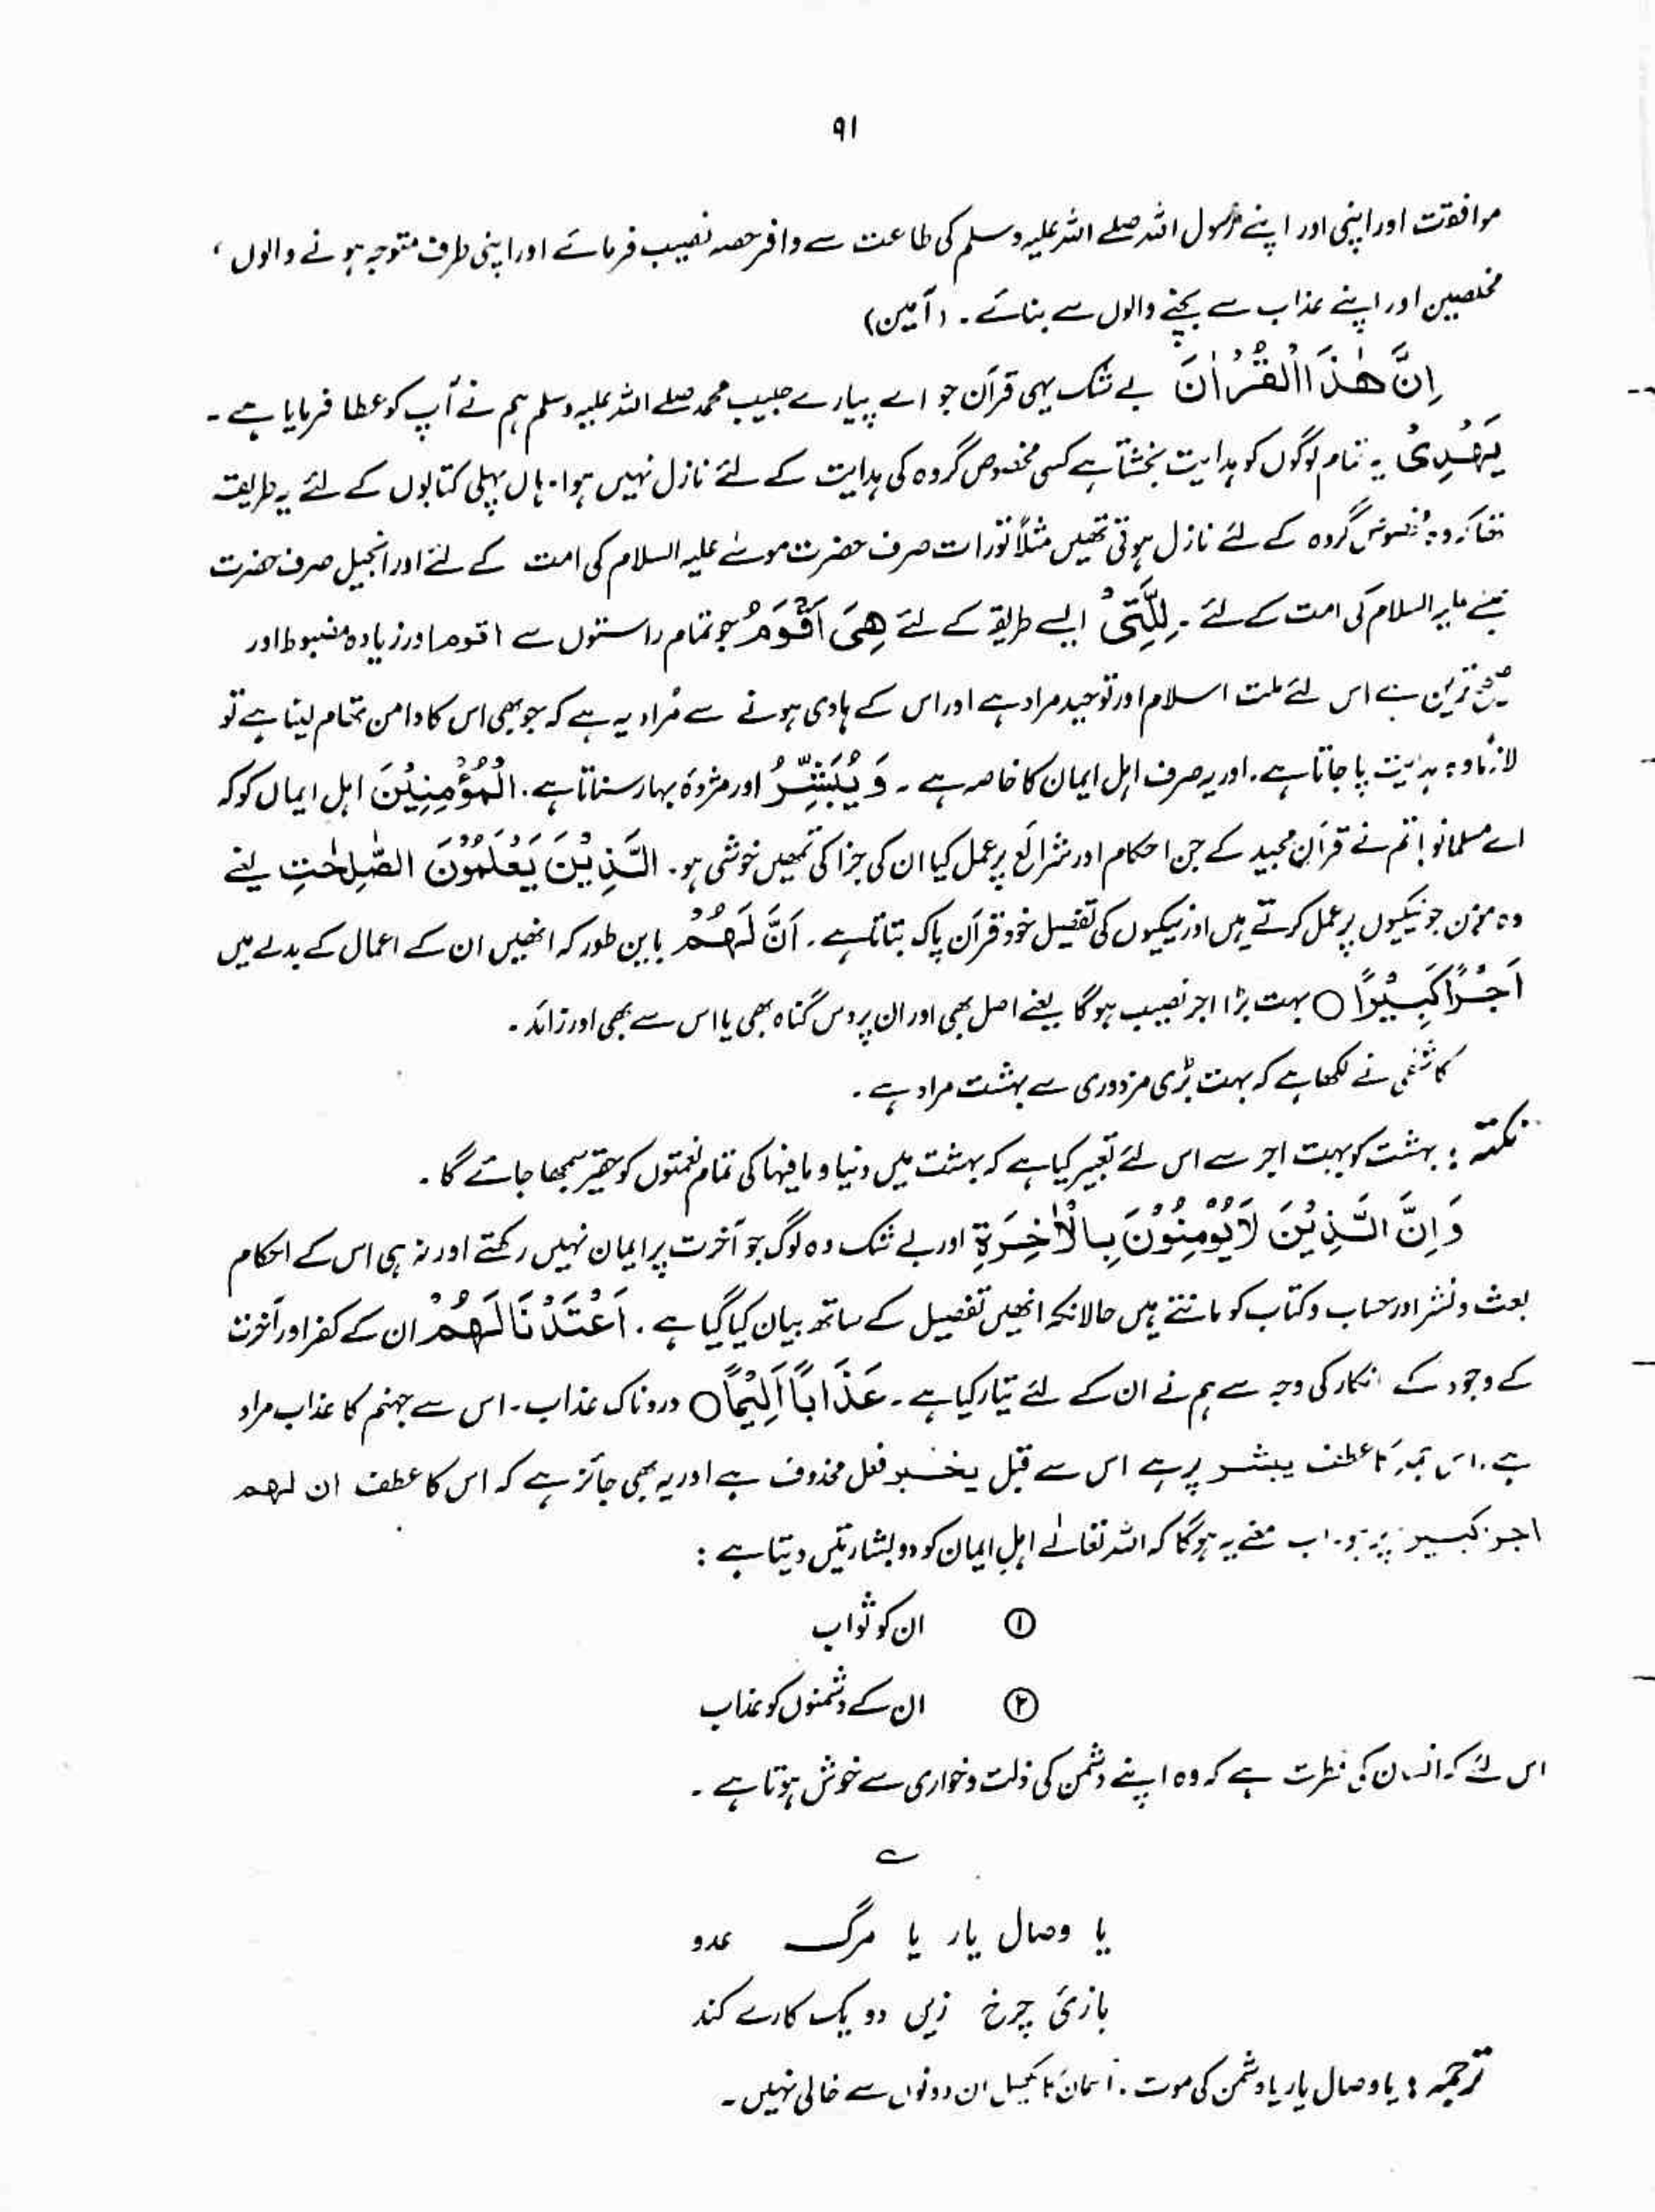 ۹۱
موافقت اور اپنی اور اپنے رسول اللہ صلے اللہ علیہ وسلم کی طاعت سے وافر حصہ نصیب فرمائے اور اپنی طرف متوجہ ہونے والوں ،
مخلصین اور اپنے عذاب سے بچنے والوں سے بنائے ۔ (آمین)
اِنَّ هٰذَا الْقُرْاٰنَ بے شک یہی قرآن جو اے پیارے حبیب محمد صلے اللہ علیہ وسلم ہم نے آپ کو عطا فرمایا ہے ۔
یَهْدِیْ یہ تمام لوگوں کو ہدایت بخشتا ہے کسی مخصوص گروہ کی ہدایت کے لئے نازل نہیں ہوا ۔ ہاں پہلی کتابوں کے لئے یہ طریقہ
تھا کہ وہ مخصوص گروہ کے لئے نازل ہوتی تھیں مثلاً تورات صرف حضرت موسٰے علیہ السلام کی امت کے لئے اور انجیل صرف حضرت
علیہ السلام کی امت کے لئے ۔ لِلَّتِیْ ایسے طریقے کے لئے هِیَ اَقْوَمُ جو تمام راستوں سے اقوم اور زیادہ مضبوط اور
صحیح ترین ہے اس لئے ملت اسلام اور توحید مراد ہے اور اس کے ہادی ہونے سے مُراد یہ ہے کہ جو بھی اس کا دامن تھام لیتا ہے تو
لازماً وہ ہدایت پا جاتا ہے ۔ اور یہ صرف اہل ایمان کا خاصہ ہے ۔ وَ یُبَشِّرُ اور مژدۂ بہار سناتا ہے ۔ الْمُؤْمِنِیْنَ اہل ایمان کو کہ
اے مسلمانو ! تم نے قرآن مجید کے جن احکام اور شرائع پر عمل کیا ان کی جزا کی تمھیں خوشی ہو ۔ الَّذِیْنَ یَعْلَمُوْنَ الصّٰلِحٰتِ یعنے
وہ مومن جو نیکیوں پر عمل کرتے ہیں اور نیکیوں کی تفصیل خود قرآن پاک بتاتا ہے ۔ اَنَّ لَهُمْ بایں طور کہ انھیں ان کے اعمال کے بدلے میں
اَجْرًا كَبِیْرًا ○ بہت بڑا اجر نصیب ہوگا یعنے اصل بھی اور ان پر دس گناہ بھی یا اس سے بھی اور زائد ۔
کاشفی نے لکھا ہے کہ بہت بڑی مزدوری سے بہشت مراد ہے ۔
نکتہ : بہشت کو بہت اجر سے اس لئے تعبیر کیا ہے کہ بہشت میں دنیا و مافیہا کی تمام نعمتوں کو حقیر سمجھا جائے گا ۔
وَ اِنَّ الَّذِیْنَ لَا یُؤْمِنُوْنَ بِالْاٰخِرَةِ اور بے شک وہ لوگ جو آخرت پر ایمان نہیں رکھتے اور نہ ہی اس کے احکام
بعث و نشر اور حساب و کتاب کو مانتے ہیں حالانکہ انھیں تفصیل کے ساتھ بیان کیا گیا ہے ۔ اَعْتَدْنَا لَهُمْ ان کے کفر اور آخرت
کے وجود کے انکار کی وجہ سے ہم نے ان کے لئے تیار کیا ہے ۔ عَذَابًا اَلِیْمًا ○ دردناک عذاب ۔ اس سے جہنم کا عذاب مراد
ہے ۔ اس جملہ کا عطف یبشر پر ہے اس سے قبل یخبر فعل محذوف ہے اور یہ بھی جائز ہے کہ اس کا عطف ان لهم
اجرا کبیرا پر ہو ۔ اب معنے یہ ہوگا کہ اللہ تعالےٰ اہلِ ایمان کو دو بشارتیں دیتا ہے :
① ان کو ثواب
② ان کے دشمنوں کو عذاب
اس لئے کہ انسان کی فطرت ہے کہ وہ اپنے دشمن کی ذلت و خواری سے خوش ہوتا ہے ۔
؎
یا وصال یار یا مرگ عدو
بازئ چرخ زیں دو یک کارے کند
ترجمہ : یا وصال یار یا دشمن کی موت ۔ آسمان کا کھیل ان دونوں سے خالی نہیں ۔